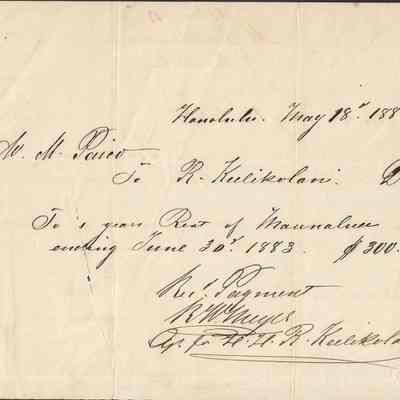 Honolulu. May 18th 188
W. M. Paico
To R. Keelikolani. D
To 1 years Rent of Maunalua
ending June 30th 1883. $300.
Rec'd Payment
R W Meyer
Agt. for H. H. R. Keelikola